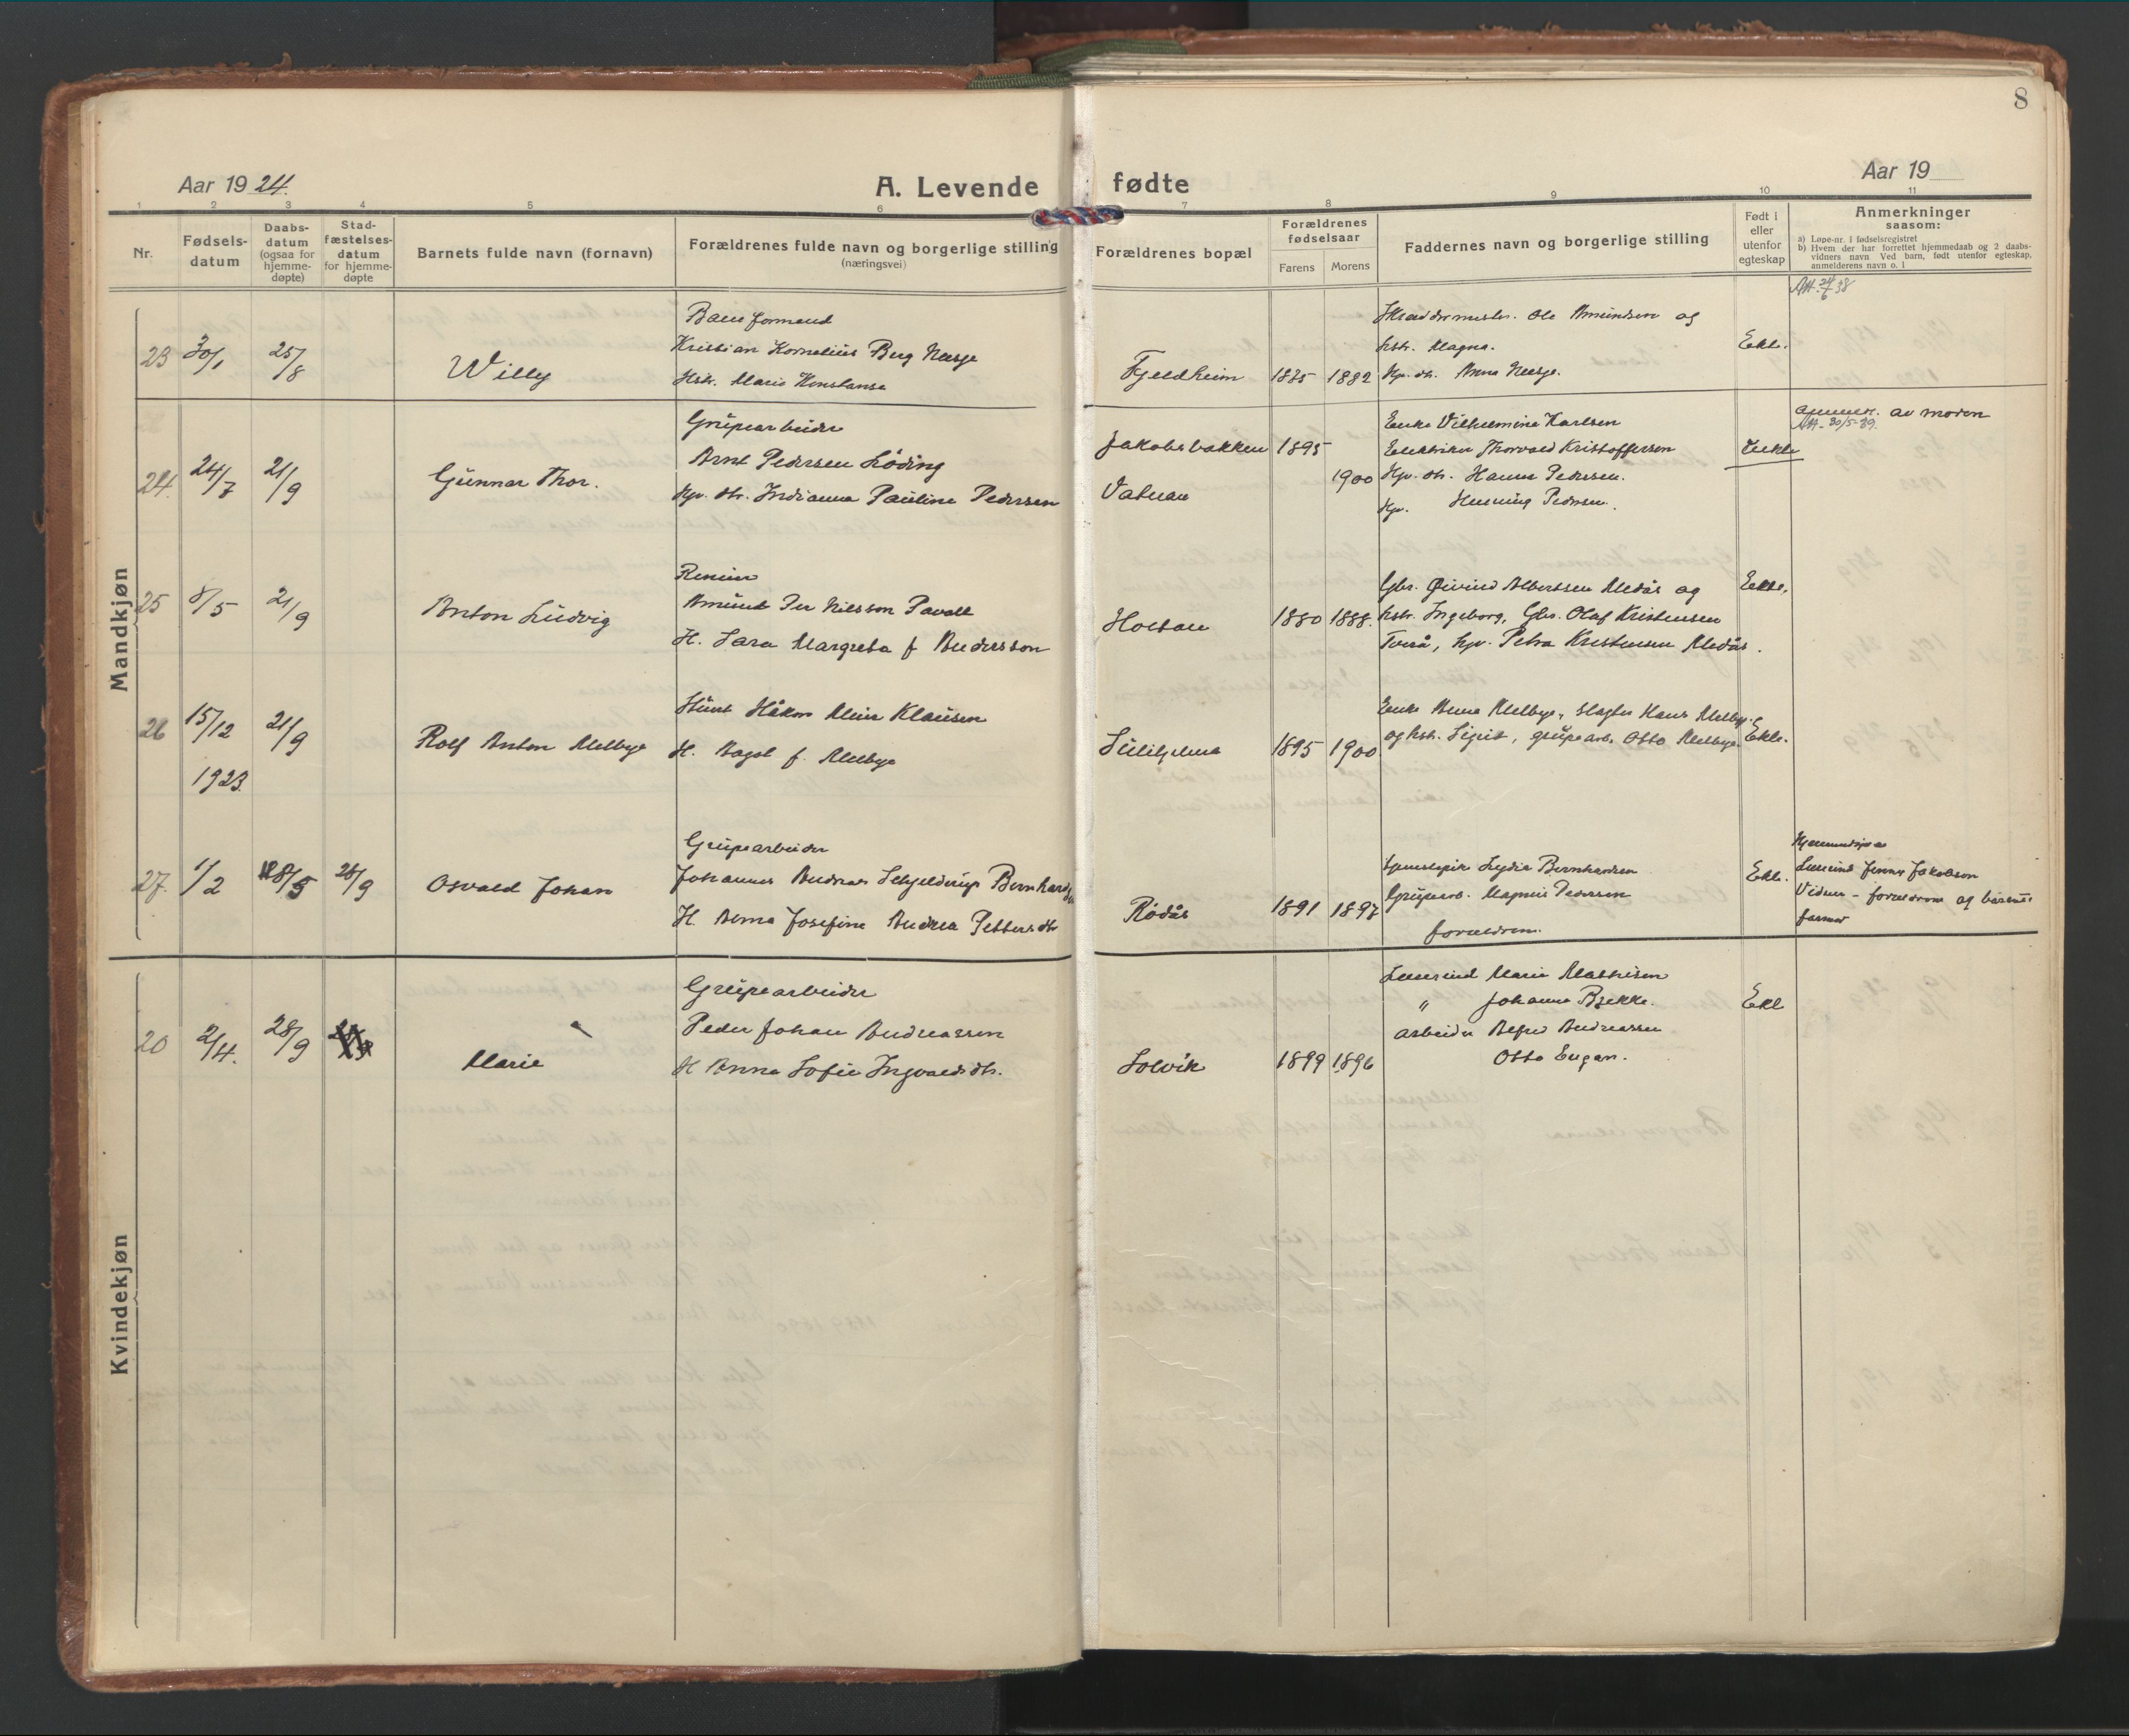 8
Aar 1924.
A. Levende fødte
Aar 19
1 2 3 4 5 6 7 8 9 10 11
Nr.
Fødsels-
datum
Daabs-
datum
(ogsaa for
hjemme-
døpte)
Stad-
fæstelses-
datum
for hjemme-
døpte
Barnets fulde navn (fornavn)
Forældrenes fulde navn og borgerlige stilling
(næringsvei)
Forældrenes bopæl
Forældrenes
fødselsaar
Farens Morens
Faddernes navn og borgerlige stilling
Født i
eller
utenfor
egteskap
Anmerkninger
saasom:
a) Løpe-nr. i fødselsregistret
b) Hvem der har forrettet hjemmedaab og 2 daabs-
vidners navn Ved barn, født utenfor egteskap,
anmelderens navn o. l
Mandkjøn
Att. 24/6 38
23 30/1 25/8
Willy
Baneformand
Kristian Kornelius Berg
Hstr. Marie Konstanse
Fjeldheim 1875 1882
Skræddermestr. Ole Amundsen og
hstr. Magna.
Hp. dtr. Anna
Ekte.
24. 24/7 21/9
Gunnar Thor.
Grubearbeider
Arnt Pedersen Löding
Hpv. dtr. Indianna Pauline Pedersen
Jakobsbakken 1895
Vatnan 1900
Enke Vilhelmine Karlsen
Elektriker Thorvald Kristoffersen
Hpv. dtr. Hanna Pedersen.
Hpv. Henning Pedersen.
Uekte
anmeldt. av moren
Att. 30/5-39.
25 8/5 21/9
Anton Ludvig
Amund Per Nilsson Pavall
H. Sara Margreta f. Andersson
1880 1888.
Gbr. Øivind Albertsen Medås og
hstr. Ingeborg, Gbr. Olaf Kristensen
Tverå, hpv. Petra Kristensen Medås.
Ekte.
26 15/12 21/9
1923.
Rolf Anton Melbye
Håkon Klausen
H. Bagot f. Melbye
Sulitjelma 1895 1900
Enke Anna Melbye, slagter Hans Melbye
og hstr. Sigrid, grubearb. Otto Melbye.
Ekte.
27. 1/2 18/5 28/9
Osvald Johan
Grubearbeider
Johannes Andreas Schjelderup Bernhardsen
H. Anna Josefine Andrea Pettersdtr
Rödås 1891 1897
Lydia Bernhardsen
Grubearb. Magnus Pedersen
foreldrene.
Ekte.
Hjemmedøpt av
Lærerind Jenny Jakobsen
Vidner - foreldrene og barnets
farmor
Kvindekjøn
20 2/4. 28/9
Marie
Grubearbeider
Peder Johan Andreassen
H Anna Sofie Ingvaldsdtr.
Solvik 1899 1896
Lærerind Marie Mathisen
" Johanna Brekke.
Arbeider Alfred Andreassen
Otto Engan.
Ekt